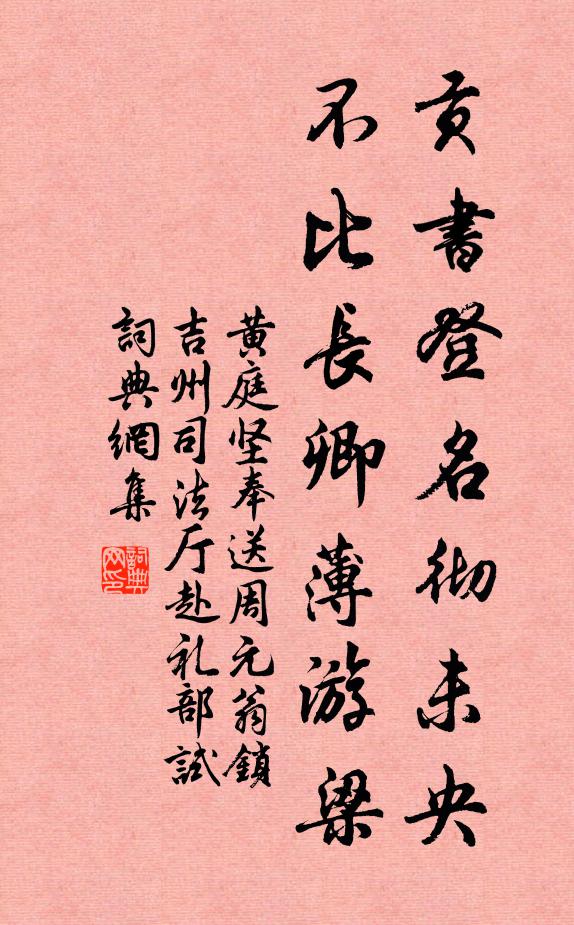 贡書登名彻未央
不比長卿薄游梁
黄庭坚奉送周元翁鎖
吉州司法厅赴礼部試
詞典網集
詞典网印